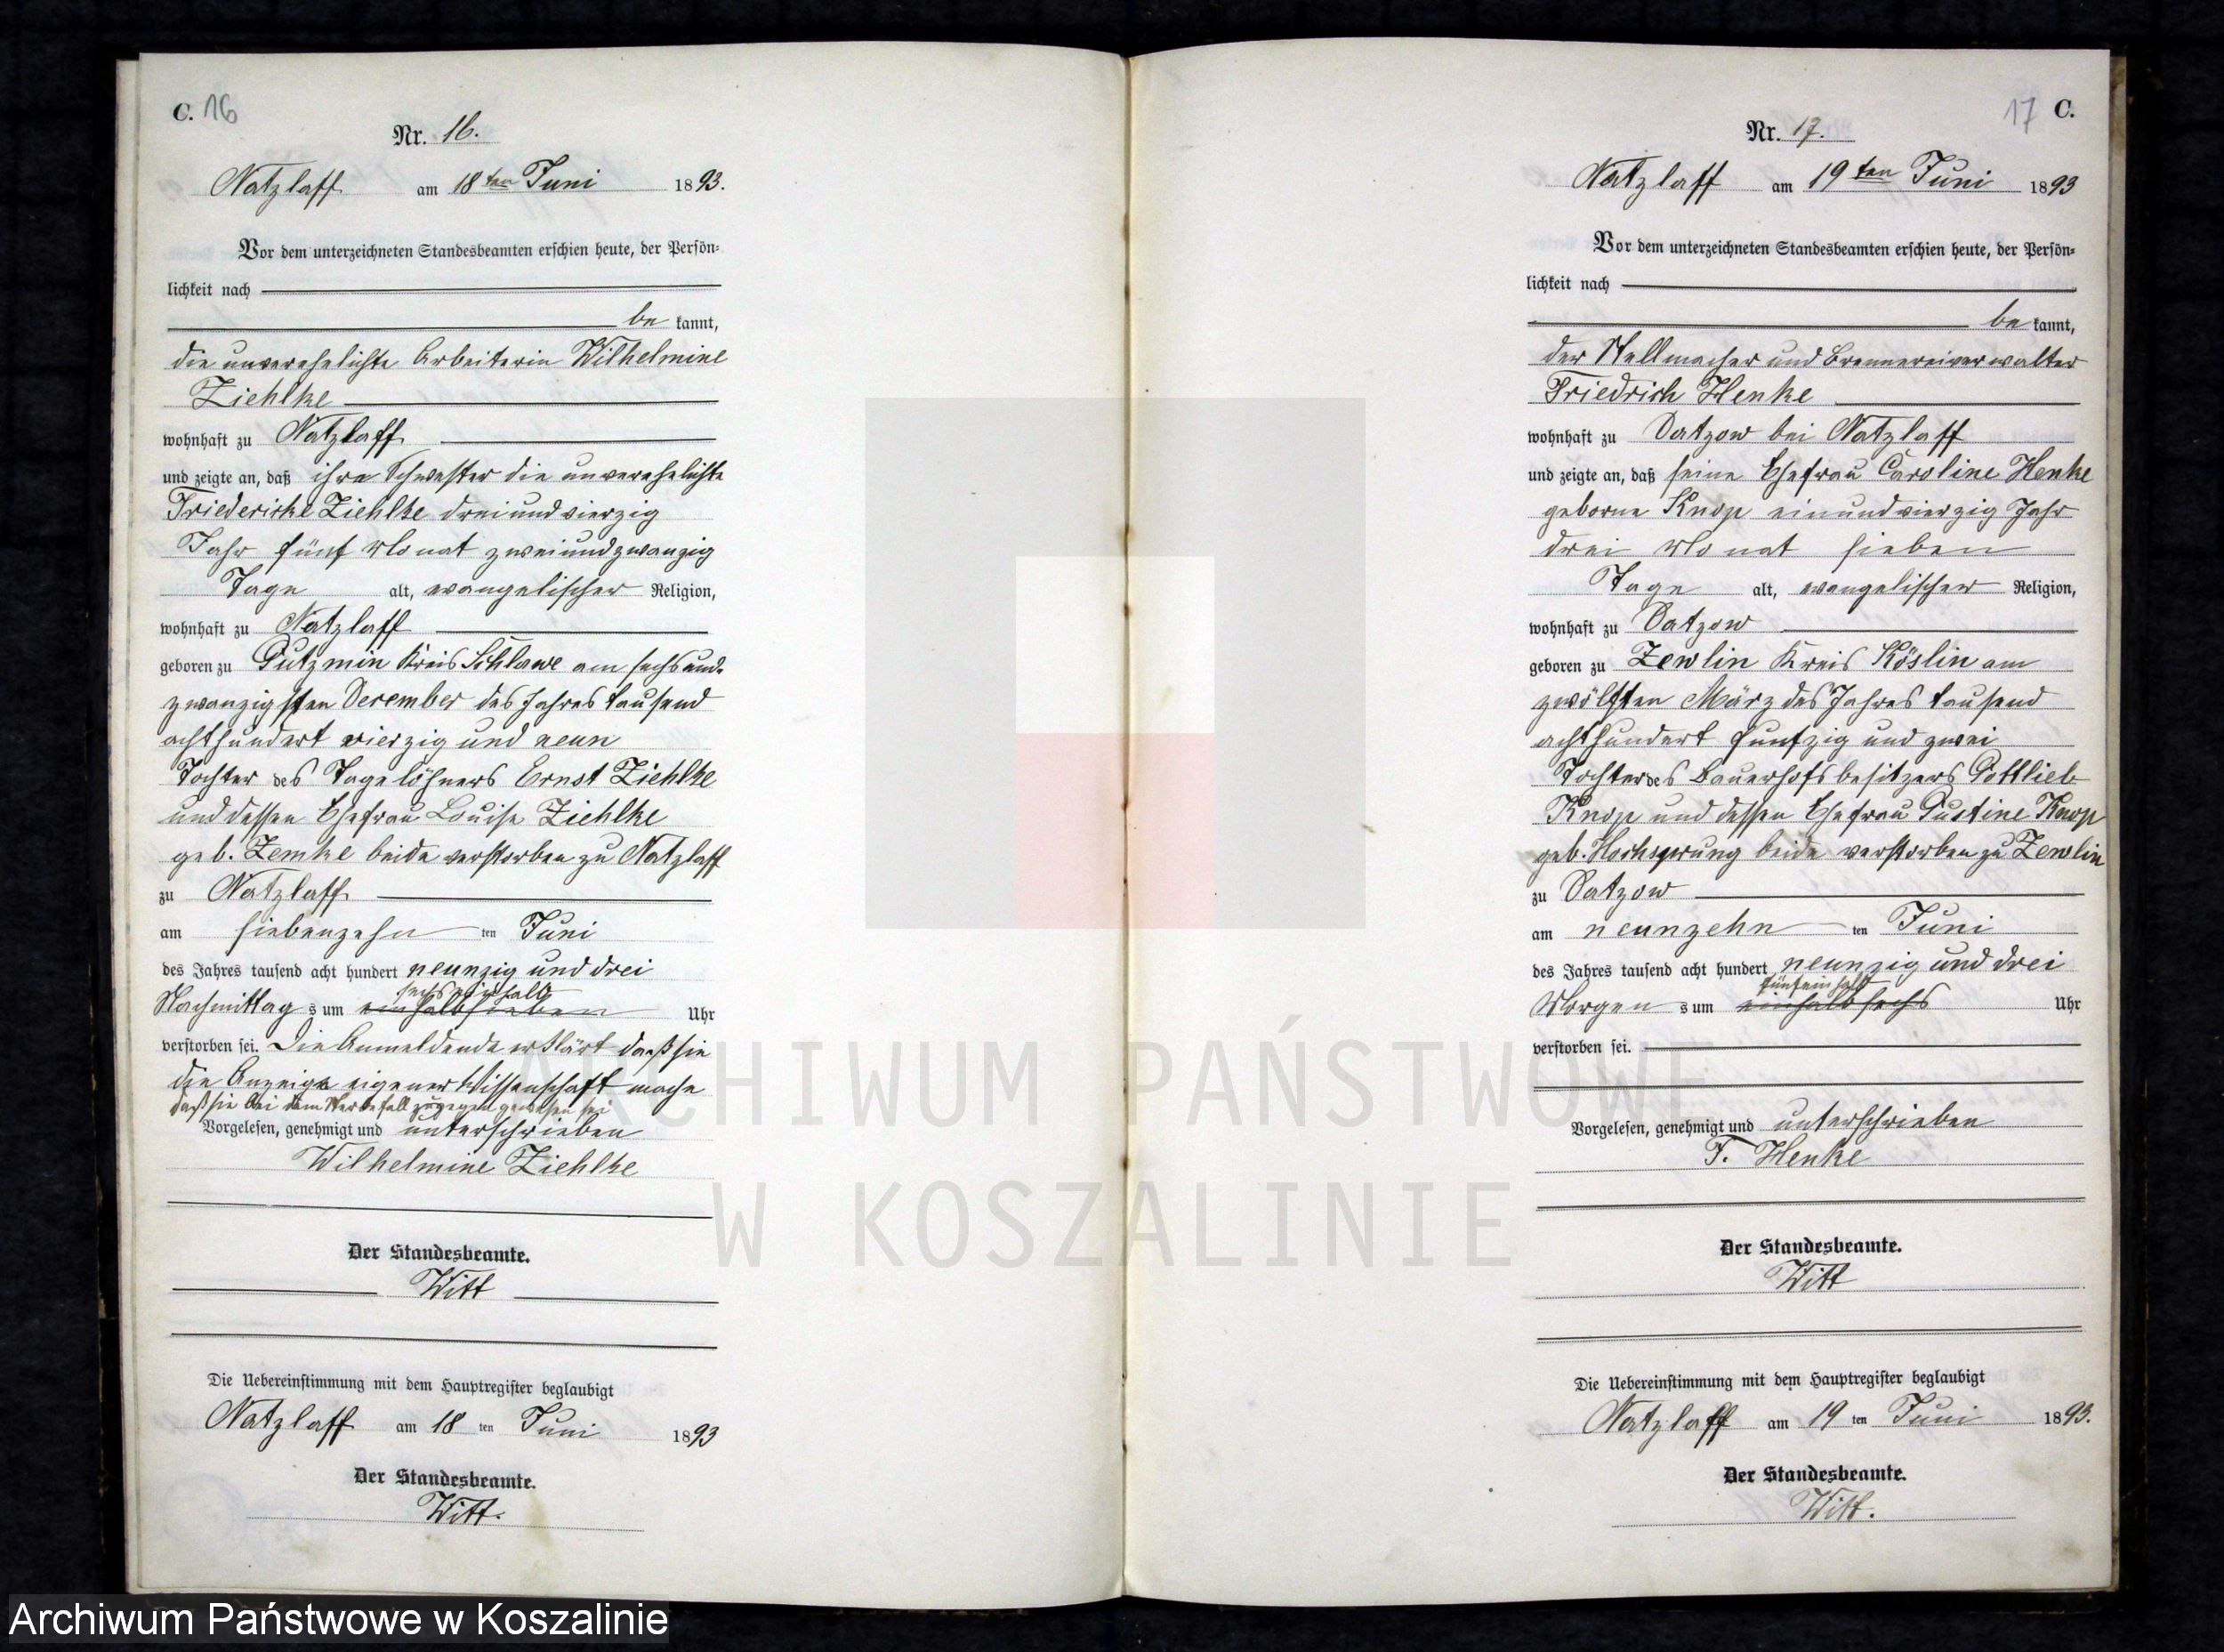 C. 16
Nr. 16.
Natzlaff am 18ten Juni 1893.
Vor dem unterzeichneten Standesbeamten erschien heute, der Persön-
lichkeit nach
be kannt,
die unverehelichte Arbeiterin Wilhelmine
Ziehlke
wohnhaft zu Natzlaff
und zeigte an, daß ihre Schwester die unverehelichte
Friedericke Ziehlke dreiundvierzig
Jahr fünf Monat zweiundzwanzig
Tage alt, evangelischer Religion,
wohnhaft zu Natzlaff
geboren zu Gutzmin Kreis Schlawe am sechsund-
zwanzigsten December des Jahres tausend
achthundert vierzig und neun
Tochter des Tagelöhners Ernst Ziehlke
und dessen Ehefrau Louise Ziehlke
geb. Zemke beide verstorben zu Natzlaff
zu Natzlaff
am siebenzehn ten Juni
des Jahres tausend acht hundert neunzig und drei
sechseinhalb
Nachmittag s um einhalbsieben Uhr
verstorben sei. Die Anmeldende erklärt daß sie
die Anzeige eigener Wissenschaft mache
daß sie bei dem Sterbefall zugegen gewesen sei
Vorgelesen, genehmigt und unterschrieben
Wilhelmine Ziehlke
Der Standesbeamte.
Witt
Die Uebereinstimmung mit dem Hauptregister beglaubigt
Natzlaff am 18 ten Juni 1893
Der Standesbeamte.
Witt.
17 C.
Nr. 17.
Natzlaff am 19ten Juni 1893
Vor dem unterzeichneten Standesbeamten erschien heute, der Persön-
lichkeit nach
be kannt,
der Stellmacher und Brennereiverwalter
Friedrich Henke
wohnhaft zu Datzow bei Natzlaff
und zeigte an, daß seine Ehefrau Caroline Henke
geborne Knop einundvierzig Jahr
drei Monat sieben
Tage alt, evangelischer Religion,
wohnhaft zu Datzow
geboren zu Zewlin Kreis Köslin am
zwölften März des Jahres tausend
achthundert funfzig und zwei
Tochter des Bauerhofsbesitzers Gottlieb
Knop und dessen Ehefrau Justine Knop
geb. Hochsprung beide verstorben zu Zewlin
zu Datzow
am neunzehn ten Juni
des Jahres tausend acht hundert neunzig und drei
fünfeinhalb
Morgen s um einhalbsechs Uhr
verstorben sei.
Vorgelesen, genehmigt und unterschrieben
F. Henke
Der Standesbeamte.
Witt
Die Uebereinstimmung mit dem Hauptregister beglaubigt
Natzlaff am 19 ten Juni 1893.
Der Standesbeamte.
Witt.
ARCHIWUM PAŃSTWOWE
W KOSZALINIE
Archiwum Państwowe w Koszalinie